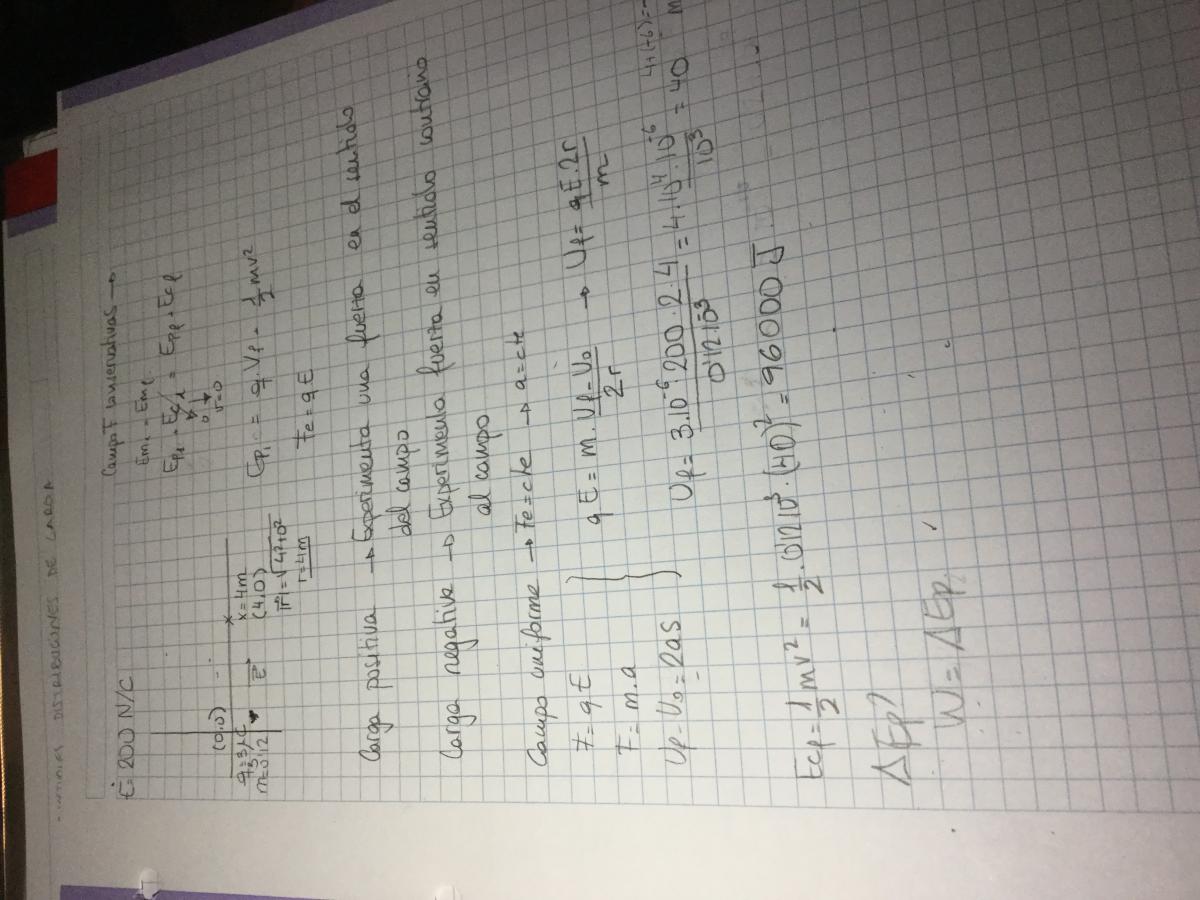 DISTRIBUCIONES DE CARGA
E = 200 N/C
Campo F conservativas →
Em₁ = Em
Ep₁ + Ec₁ = Epf + Ecf
0 v=0
(0,0)
x
q=3μC
m=0'12
E
x=4m
(4,0)
|r|=√4²+0²
r=4m
Ep₁ = q·Vf + 1/2 mv²
Fe = q.E
Carga positiva → Experimenta una fuerza en el sentido
del campo
Carga negativa → Experimenta fuerza en sentido contrario
al campo
Campo uniforme → Fe=cte → a=cte
F = q.E
F = m.a
Vf - V₀ = 2as
qE = m. Vf-V₀ / 2r → Vf = qE.2r / m
Vf = 3.10⁻⁶ 200.2.4 / 0'12.10⁻³ = 4.10⁴.10⁻⁶ / 10³ = 40 m
Ecf = 1/2 mv² = 1/2 .0'12 10³.(40)² = 96000 J
ΔEp?
W = ΔEp